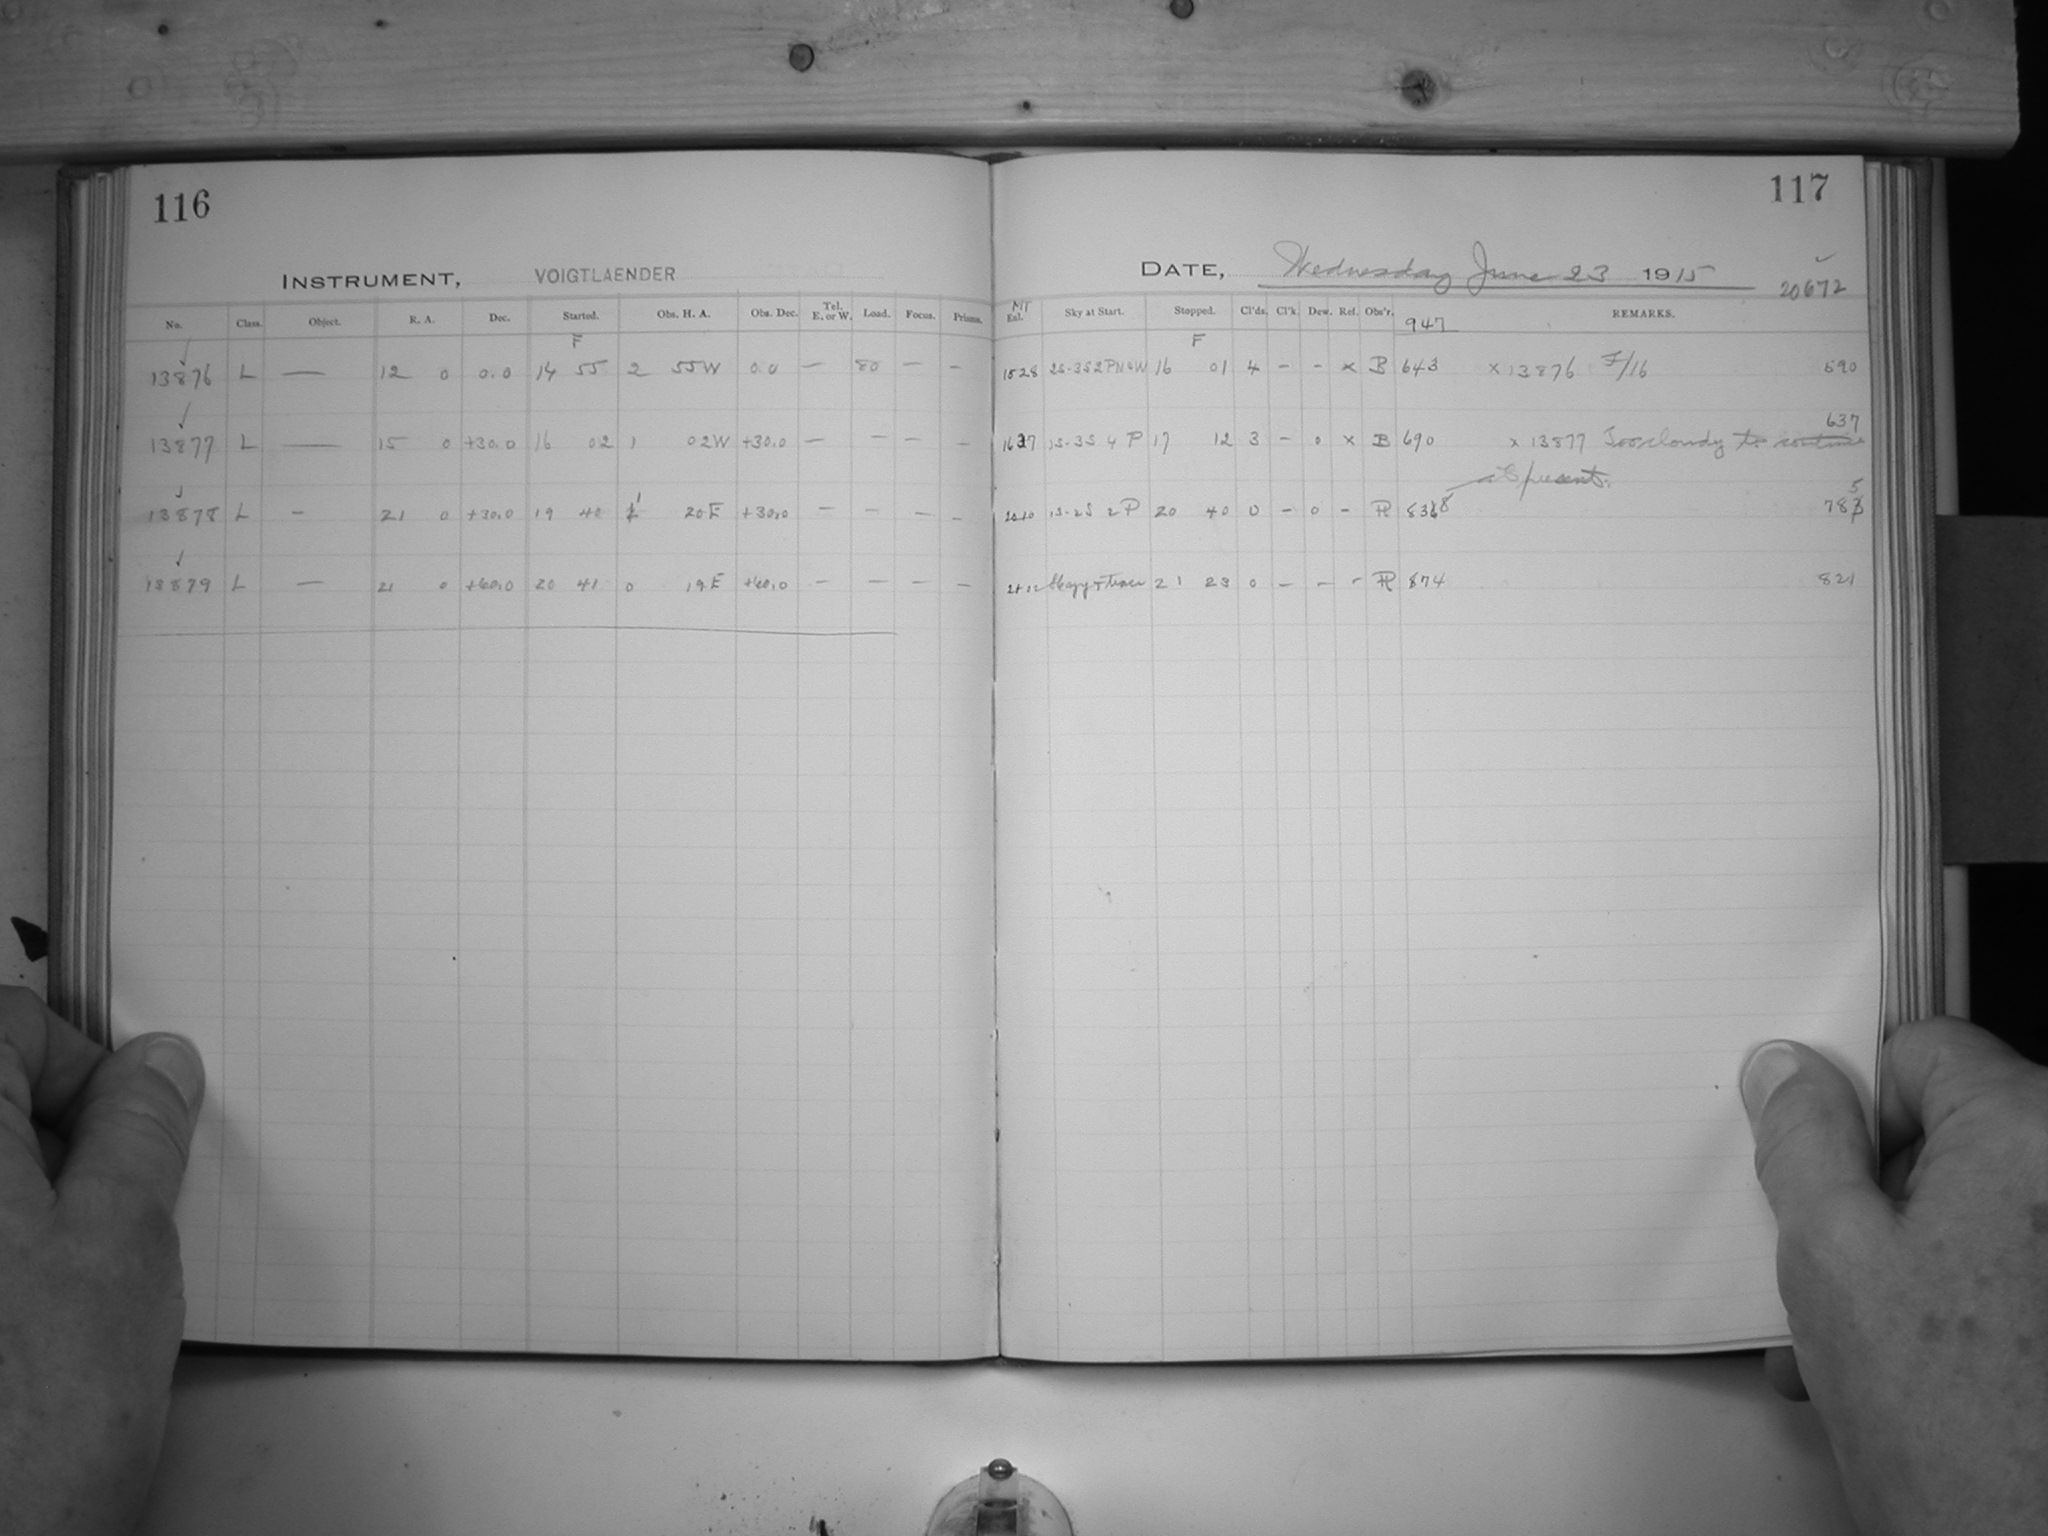 116
INSTRUMENT, VOIGTLAENDER
No. Class. Object. R. A. Dec. Started. Obs. H. A. Obs. Dec. Tel. E. or W. Load. Focus. Prisms.
F
13876 L — 12 0 0.0 14 55 2 55W 0.0 — 80 — —
13877 L — 15 0 +30.0 16 02 1 02W +30.0 — — — —
13878 L — 21 0 +30.0 19 40 1 20E +30.0 — — — —
13879 L — 21 0 +60.0 20 41 0 19E +60.0 — — — —
117
DATE, Wednesday June 23 1915
20672
MT
Exl. Sky at Start. Stopped. Cl'ds. Cl'k. Dew. Ref. Obs'r. 947 REMARKS.
F
1528 2S-3S2P 16 01 4 — — x B 643 x 13876 F/16 590
637
1637 1S-3S 4 P 17 12 3 — 0 x B 690 x 13877 Too cloudy to continue
at present.
5
1S-2S 2 P 20 40 0 — 0 — R 838 783
21 23 0 — — — R 874 821